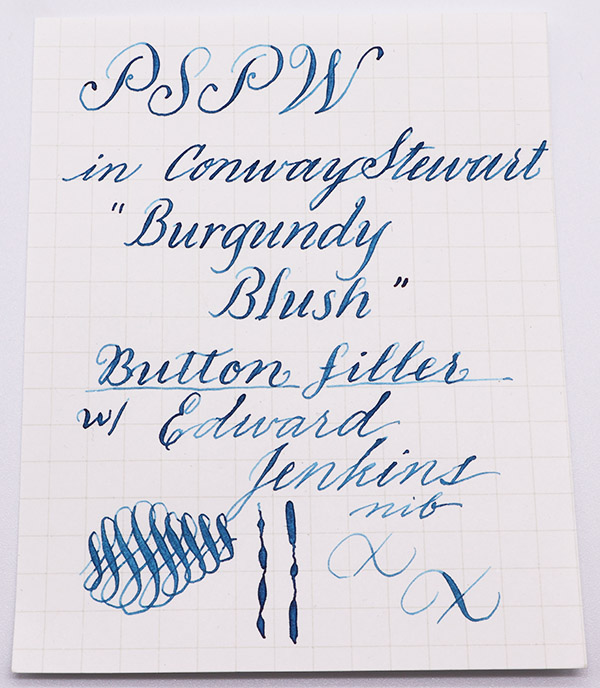 PSPW
in Conway Stewart
"Burgundy
Blush"
Button filler
w/ Edward
Jenkins
nib
X
X